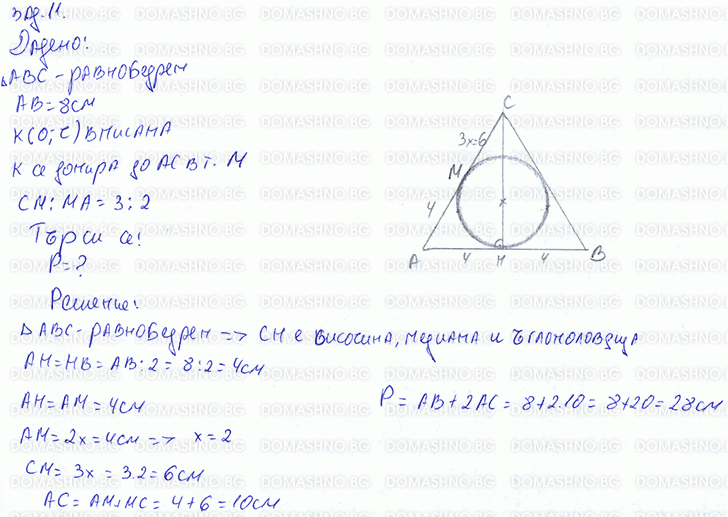 Зад. 11.
Дадено:
△ABC - равнобедрен
AB = 8 см
K(O; r) вписана
K се допира до AC в т. M
CM : MA = 3 : 2
Търси се:
P = ?
Решение:
△ABC - равнобедрен => CH е височина, медиана и ъглополовяща
AH = HB = AB : 2 = 8 : 2 = 4 см
AH = AM = 4 см
P = AB + 2AC = 8 + 2.10 = 8 + 20 = 28 см
AM = 2x = 4 см => x = 2
CM = 3x = 3.2 = 6 см
AC = AM + MC = 4 + 6 = 10 см
C
3x=6
M
4
x
A 4 H 4 B
DOMASHNO.BG